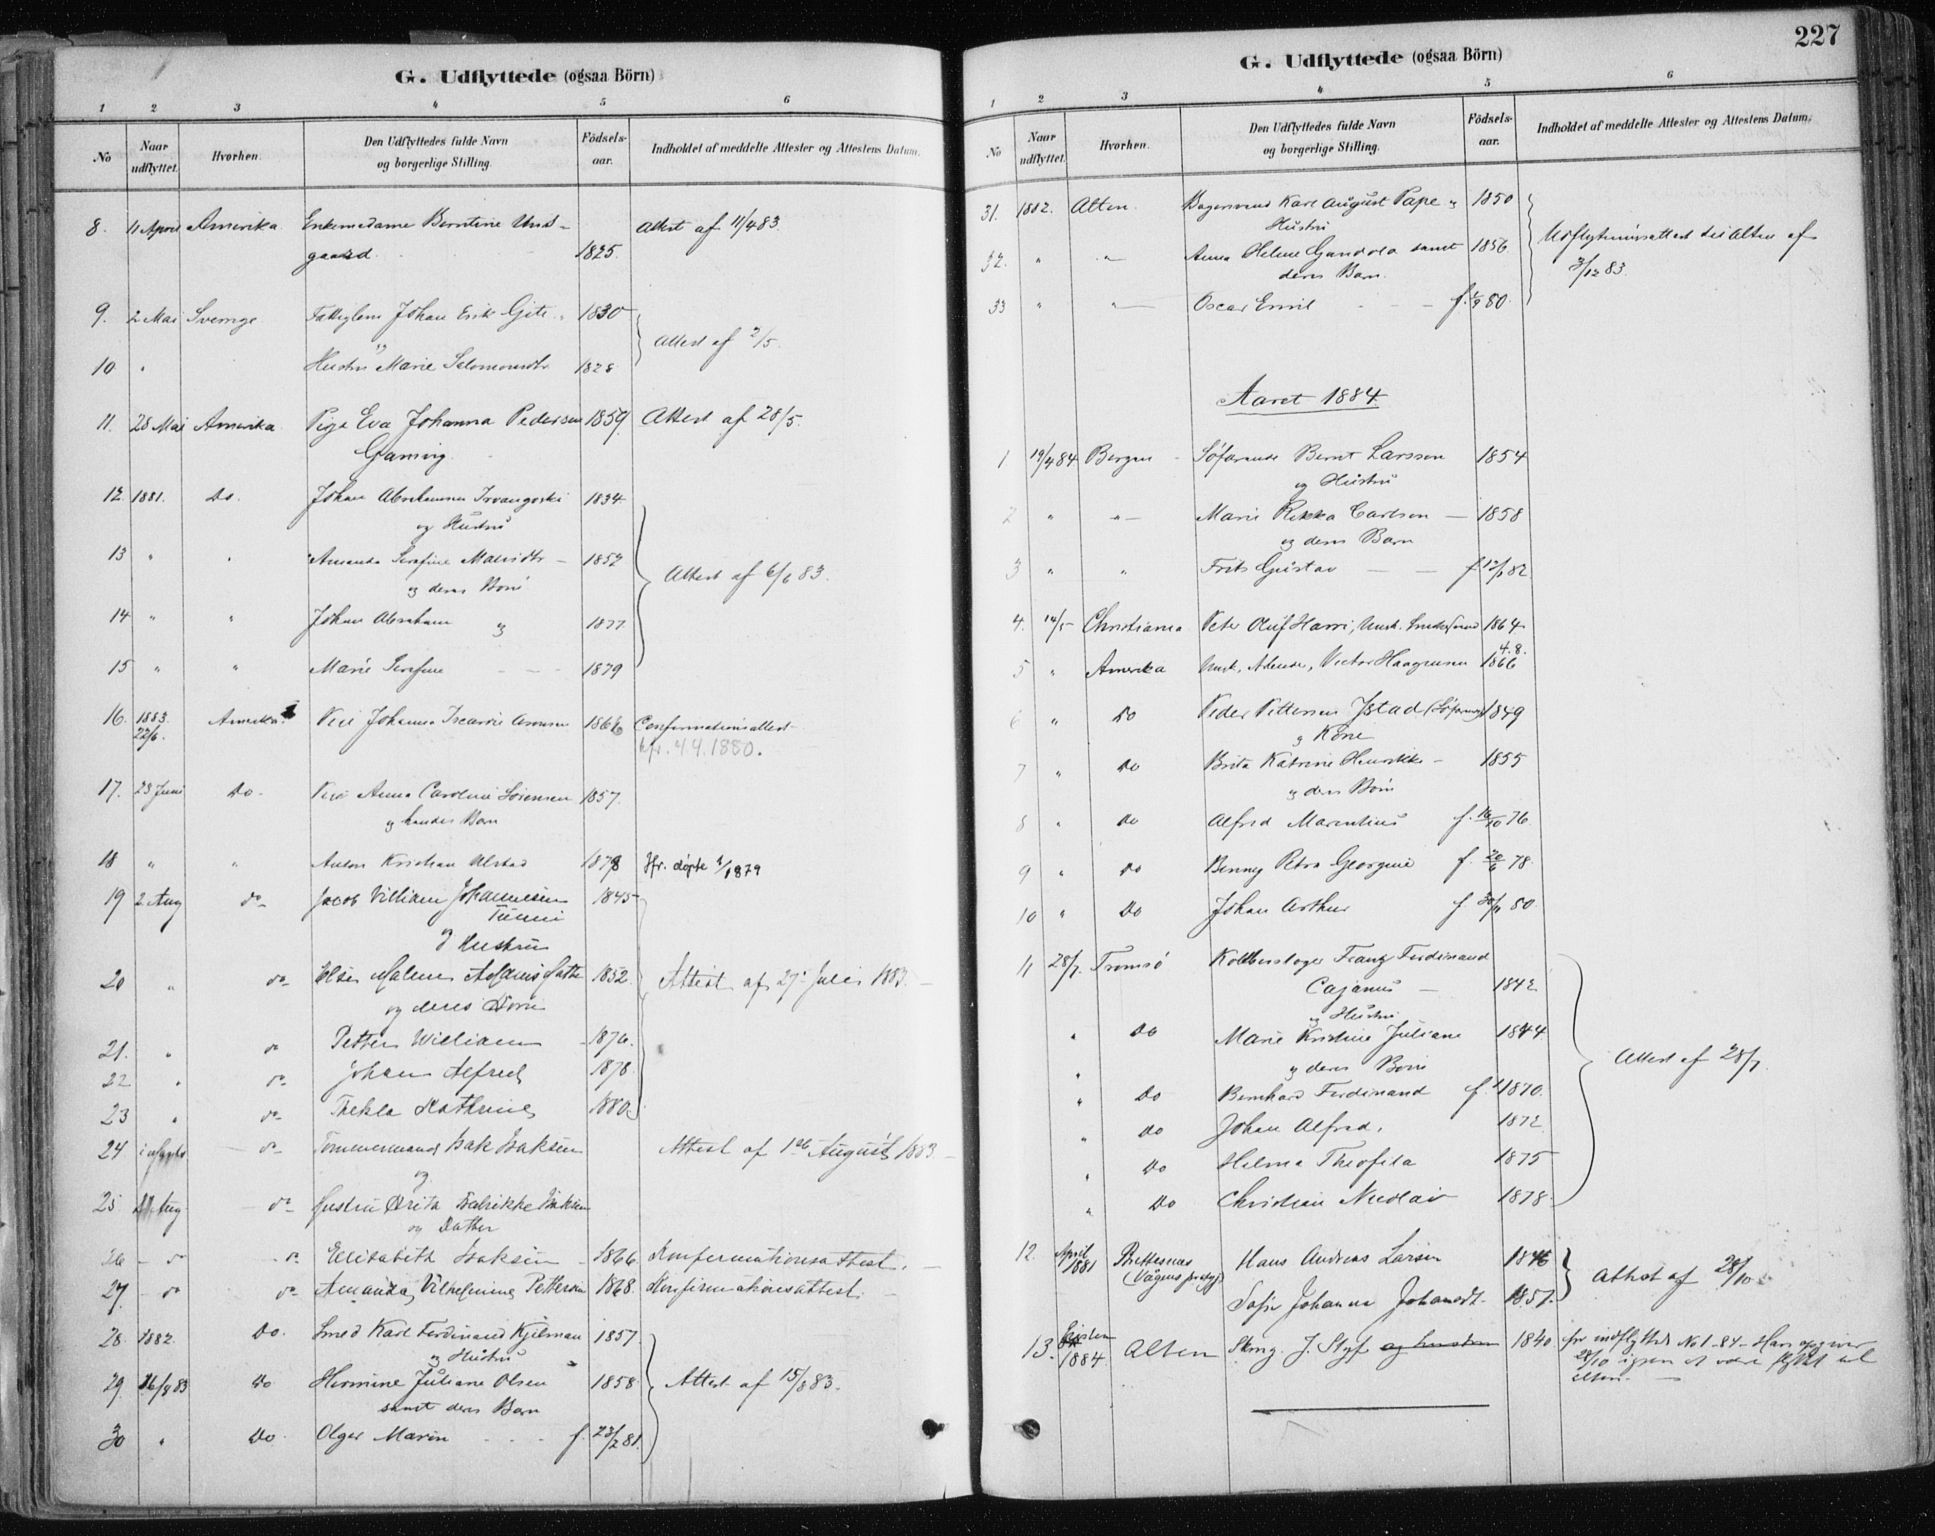 G. Udflyttede (ogsaa Börn)
1 2 3 4 5 6
No Naar udflyttet. Hvorhen. Den Udflyttedes fulde Navn og borgerlige Stilling. Födsels-aar. Indholdet af meddelte Attester og Attestens Datum.
8. 11 April Amerika Enkemadame Berntine Und-
gaard 1825. Attest af 11/4 83.
9. 2 Mai Sverige Johan Erik 1830
og Attest af 2/5.
10 " Hustru Marie Salomonsdtr 1828
11. 28 Mai Amerika Pige Eva Johanna Pedersen 1859 Attest af 28/5.
12. 1881. Do. Johan Abrahamsen 1834
og Hustru
13 " " Amanda Serafine 1852
og deres Börn Attest af 6/6 83.
14 " " Johan Abraham og 1877
15 " " Marie Serafine 1879
16. 1883. 22/6. Amerika Johanna 1866 Confirmationsattest
kfr. 4.4.1880.
17. 23 Juni Do. Anna Caroline Sörensen 1857.
og hendes Barn
18 " " Anton Kristian 1878 Jfr. døpte 1/1879
19 2 Aug do Jacob Villiam Johannesen 1845
og Hustru
20 " do Else Malene 1852 Attest af 27de Juli 1883.
og deres Börn
21. " do Petter William 1876.
22 " do Johan Alfred 1878.
23 " do Thekla Kathrine 1880
24 do Tömmermand Isak Isaksen Attest af 1ste August 1883
og
25 Aug do Hustru Brita Isaksen
og Datter
26 do Elisabeth Isaksen 1866 Konfirmationsattest.
27. do do Amanda Vilhelmine Pettersen 1868 Konfirmationsattest.
28. 1882. Do. Smed Karl Ferdinand Kjelman 1857
og Hustru
29. 26/8 83 Do Hermine Juliane Olsen 1858 Attest af 15/8 83.
samt deres Barn
30 " Do. Olger Marin f. 23/2 81.
227
G. Udflyttede (ogsaa Börn)
1 2 3 4 5 6
No Naar udflyttet. Hvorhen. Den Udflyttedes fulde Navn og borgerlige Stilling. Födsels-aar. Indholdet af meddelte Attester og Attestens Datum.
31. 1882. Alten. Bagersvend Karl August Pape " 1850
Hustru
32. " " Anna Helene samt 1856 Udflytningsattest til Alten af
deres Barn. 3/12 83.
33 " " Oscar Emil f. 80.
Aaret 1884.
1 19/4 84 Bergen Söfarende Bernt Larsson 1854
og Hustru
2 " " Marie Rikka Carlson 1858
og deres Barn
3 " " Frits Gustav f 12/1 82.
4. 14/5 Christiania Peter Oluf Harri, 1864
5 " Amerika Victor Haagensen 4.8. 1866
6 " Do Peder Pettersen Jstad (Söfarende) 1849
og Kone
7 " Do Brita Katrine Henrikke 1855
og deres Börn
8 " Do Alfred Marentius f. 16/10 76.
9 " Do Benny Petra Georgine f. 20/6 78
10 " Do Johan Arthur f 80.
11 28/7. Tromsö Kobberslager Franz Ferdinand
Cajanus 1842
og Hustru
" Do Marie Kristine Juliane 1844
og deres Börn Attest af 28/7.
" Do Bernhard Ferdinand f. 1870.
" Do Johan Alfred. 1872
" Do Hilma Theofila 1875
" Do Christian Nicolai 1878
12. April 1881 Hans Andreas Larsen 1846
Attest af 28/10
Sofie Johanna Johansdt. 1857.
13. 1884 Alten J. Styf og hustru 1840 jfr indflyttede No 1 - 84 - Han opgiver
28/10 igjen at være flyttet til
Alten.